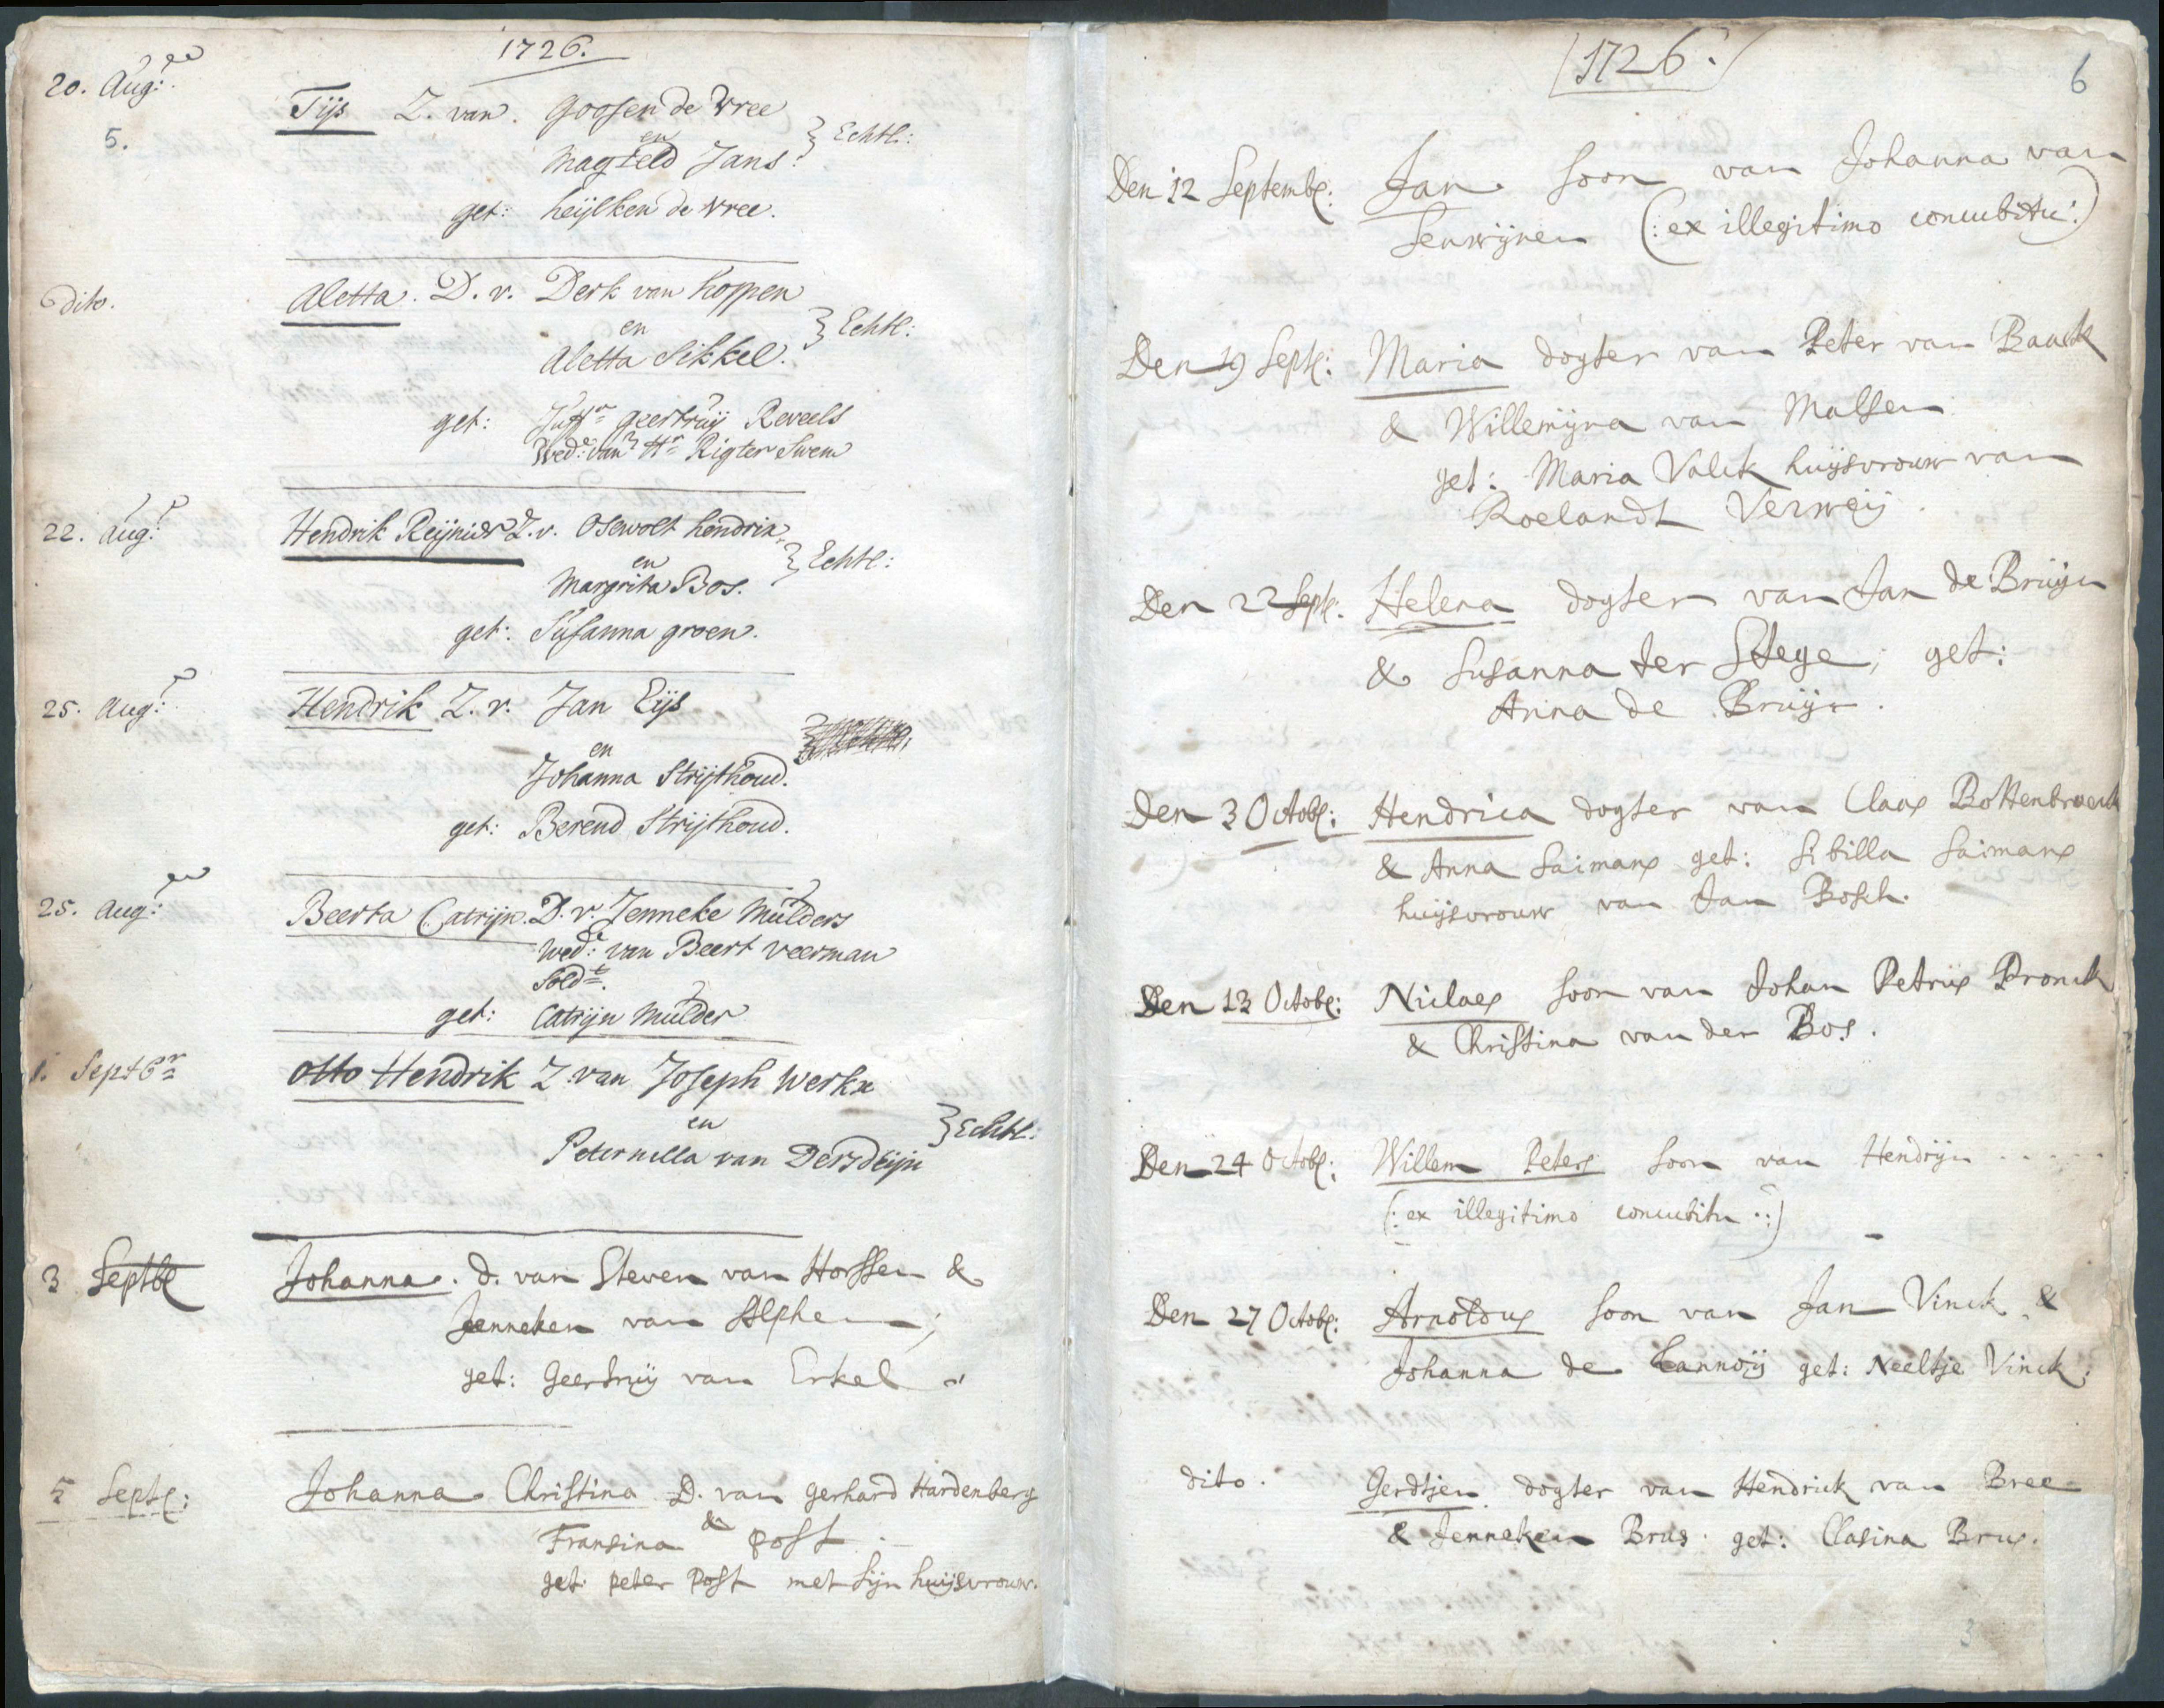 1726.
20. Aug:
5.
Tijs Z. van. Goosen de Vree
en
Magteld Jans. } Echtl:
get: heijlken de Vree.
dito.
Aletta. D. v. Derk van hoppen
en } Echtl:
Aletta Sikkel.
get: Juffr geertruij Reveels
Wed: van Hr Rigter Swem
22. Aug:
Hendrik Reijnier Z. v. Osewolt hendrix
en } Echtl:
Margrita Bos.
get: Susanna groen.
25. Aug:
Hendrik Z. v. Jan Eijs
en
Johanna Strijthoud.
get: Berend Strijthoud.
25. Aug:
Beerta Catrijn. D. v. Jenneke Mulders
Wed: van Beert veerman
Soldt.
get: Catrijn Mulder
1. Septbr
Otto Hendrik Z. van Joseph Werkx
en } Echtl:
Peternella van
3 Septb
Johanna. d. van Steven van Horssen &
Jenneken van Alphen;
get: Geertruij van Erkel
5 Sept:
Johanna Christina D. van Gerhard Hardenberg
&
Fransina Post
get: peter Post met sijn huijsvrouw.
1726.
6
Den 12 Septemb: Jan soon van Johanna van
Senwijnen (: ex illegitimo concubitu :)
Den 19 Sept: Maria dogter van Peter van Baack
& Willemijna van Malsen
get: Maria Valck huijsvrouw van
Roelandt Verweij
Den 22 Sept: Helena dogter van Jan de Bruijn
& Susanna ter Stege; get:
Anna de Bruijn.
Den 3 Octob: Hendrica dogter van Claas Bottenbroeck
& Anna Saimans get: Sibilla Saimans
huijsvrouw van Jan Bosch.
Den 13 Octob: Niclaes soon van Johan Petrus Pronck
& Christina van der Bos.
Den 24 Octob: Willem Peters soon van Hendrijn .....
(: ex illegitimo concubitu :)
Den 27 Octob: Arnoldus soon van Jan Vinck &
Johanna de Lannoij get: Neeltje Vinck.
dito. Gerdtjen dogter van Hendrick van Bree
& Jenneken Brus. get: Clasina Brus.
3